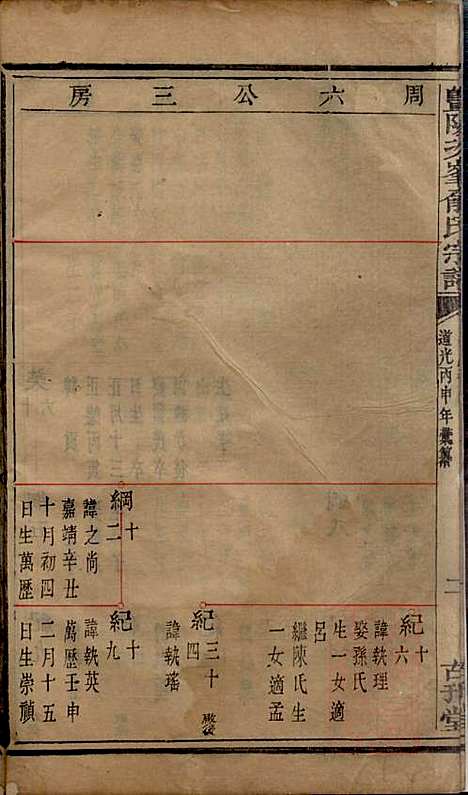 周六公三房
俞氏宗譜
道光丙申年彙纂
二
綱十二
諱之尚
嘉靖辛丑
十月初四
日生萬歷
紀十六
諱軼理
娶孫氏
生一女適
呂
繼陳氏生
一女適孟
紀三十四
諱軼瑤
殿後
紀十九
諱軼英
萬歷壬申
二月十五
日生崇禎